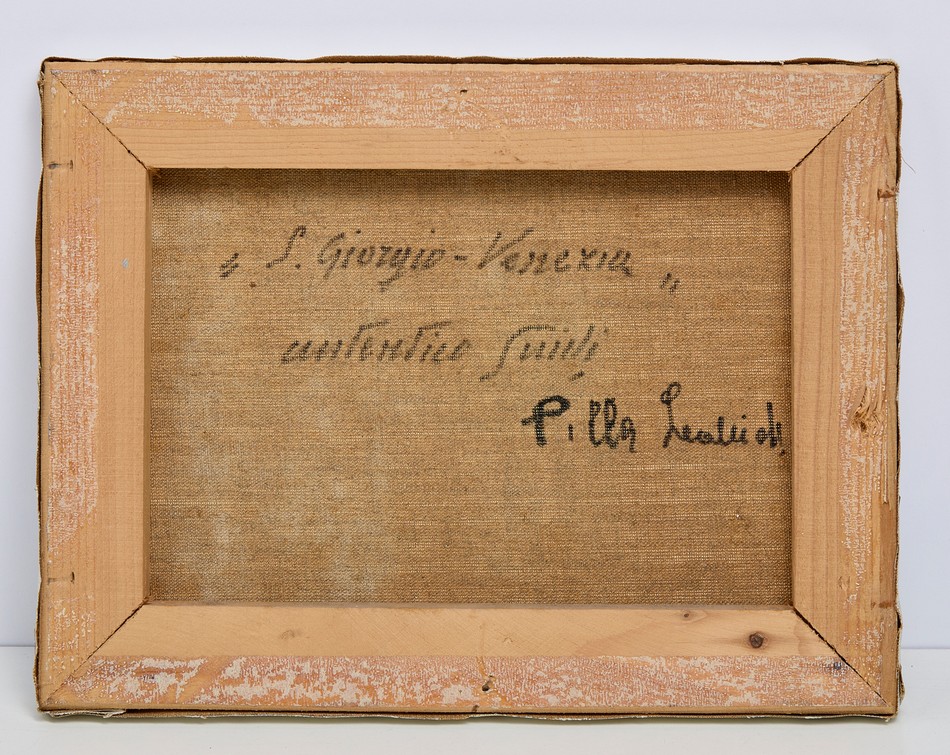 " S. Giorgio - Venezia "
autentico Guidi
Pilla